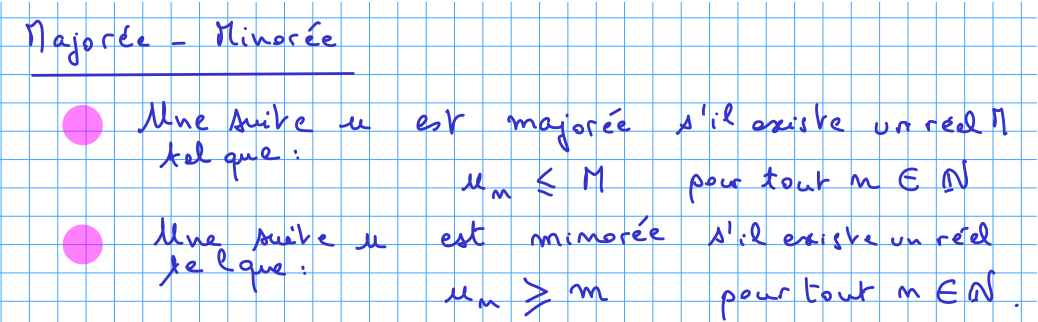 Majorée - Minorée
Une suite u est majorée s'il existe un réel M
tel que :
uₙ ⩽ M pour tout n ∈ ℕ
Une suite u est minorée s'il existe un réel
tel que :
uₙ ⩾ m pour tout n ∈ ℕ.